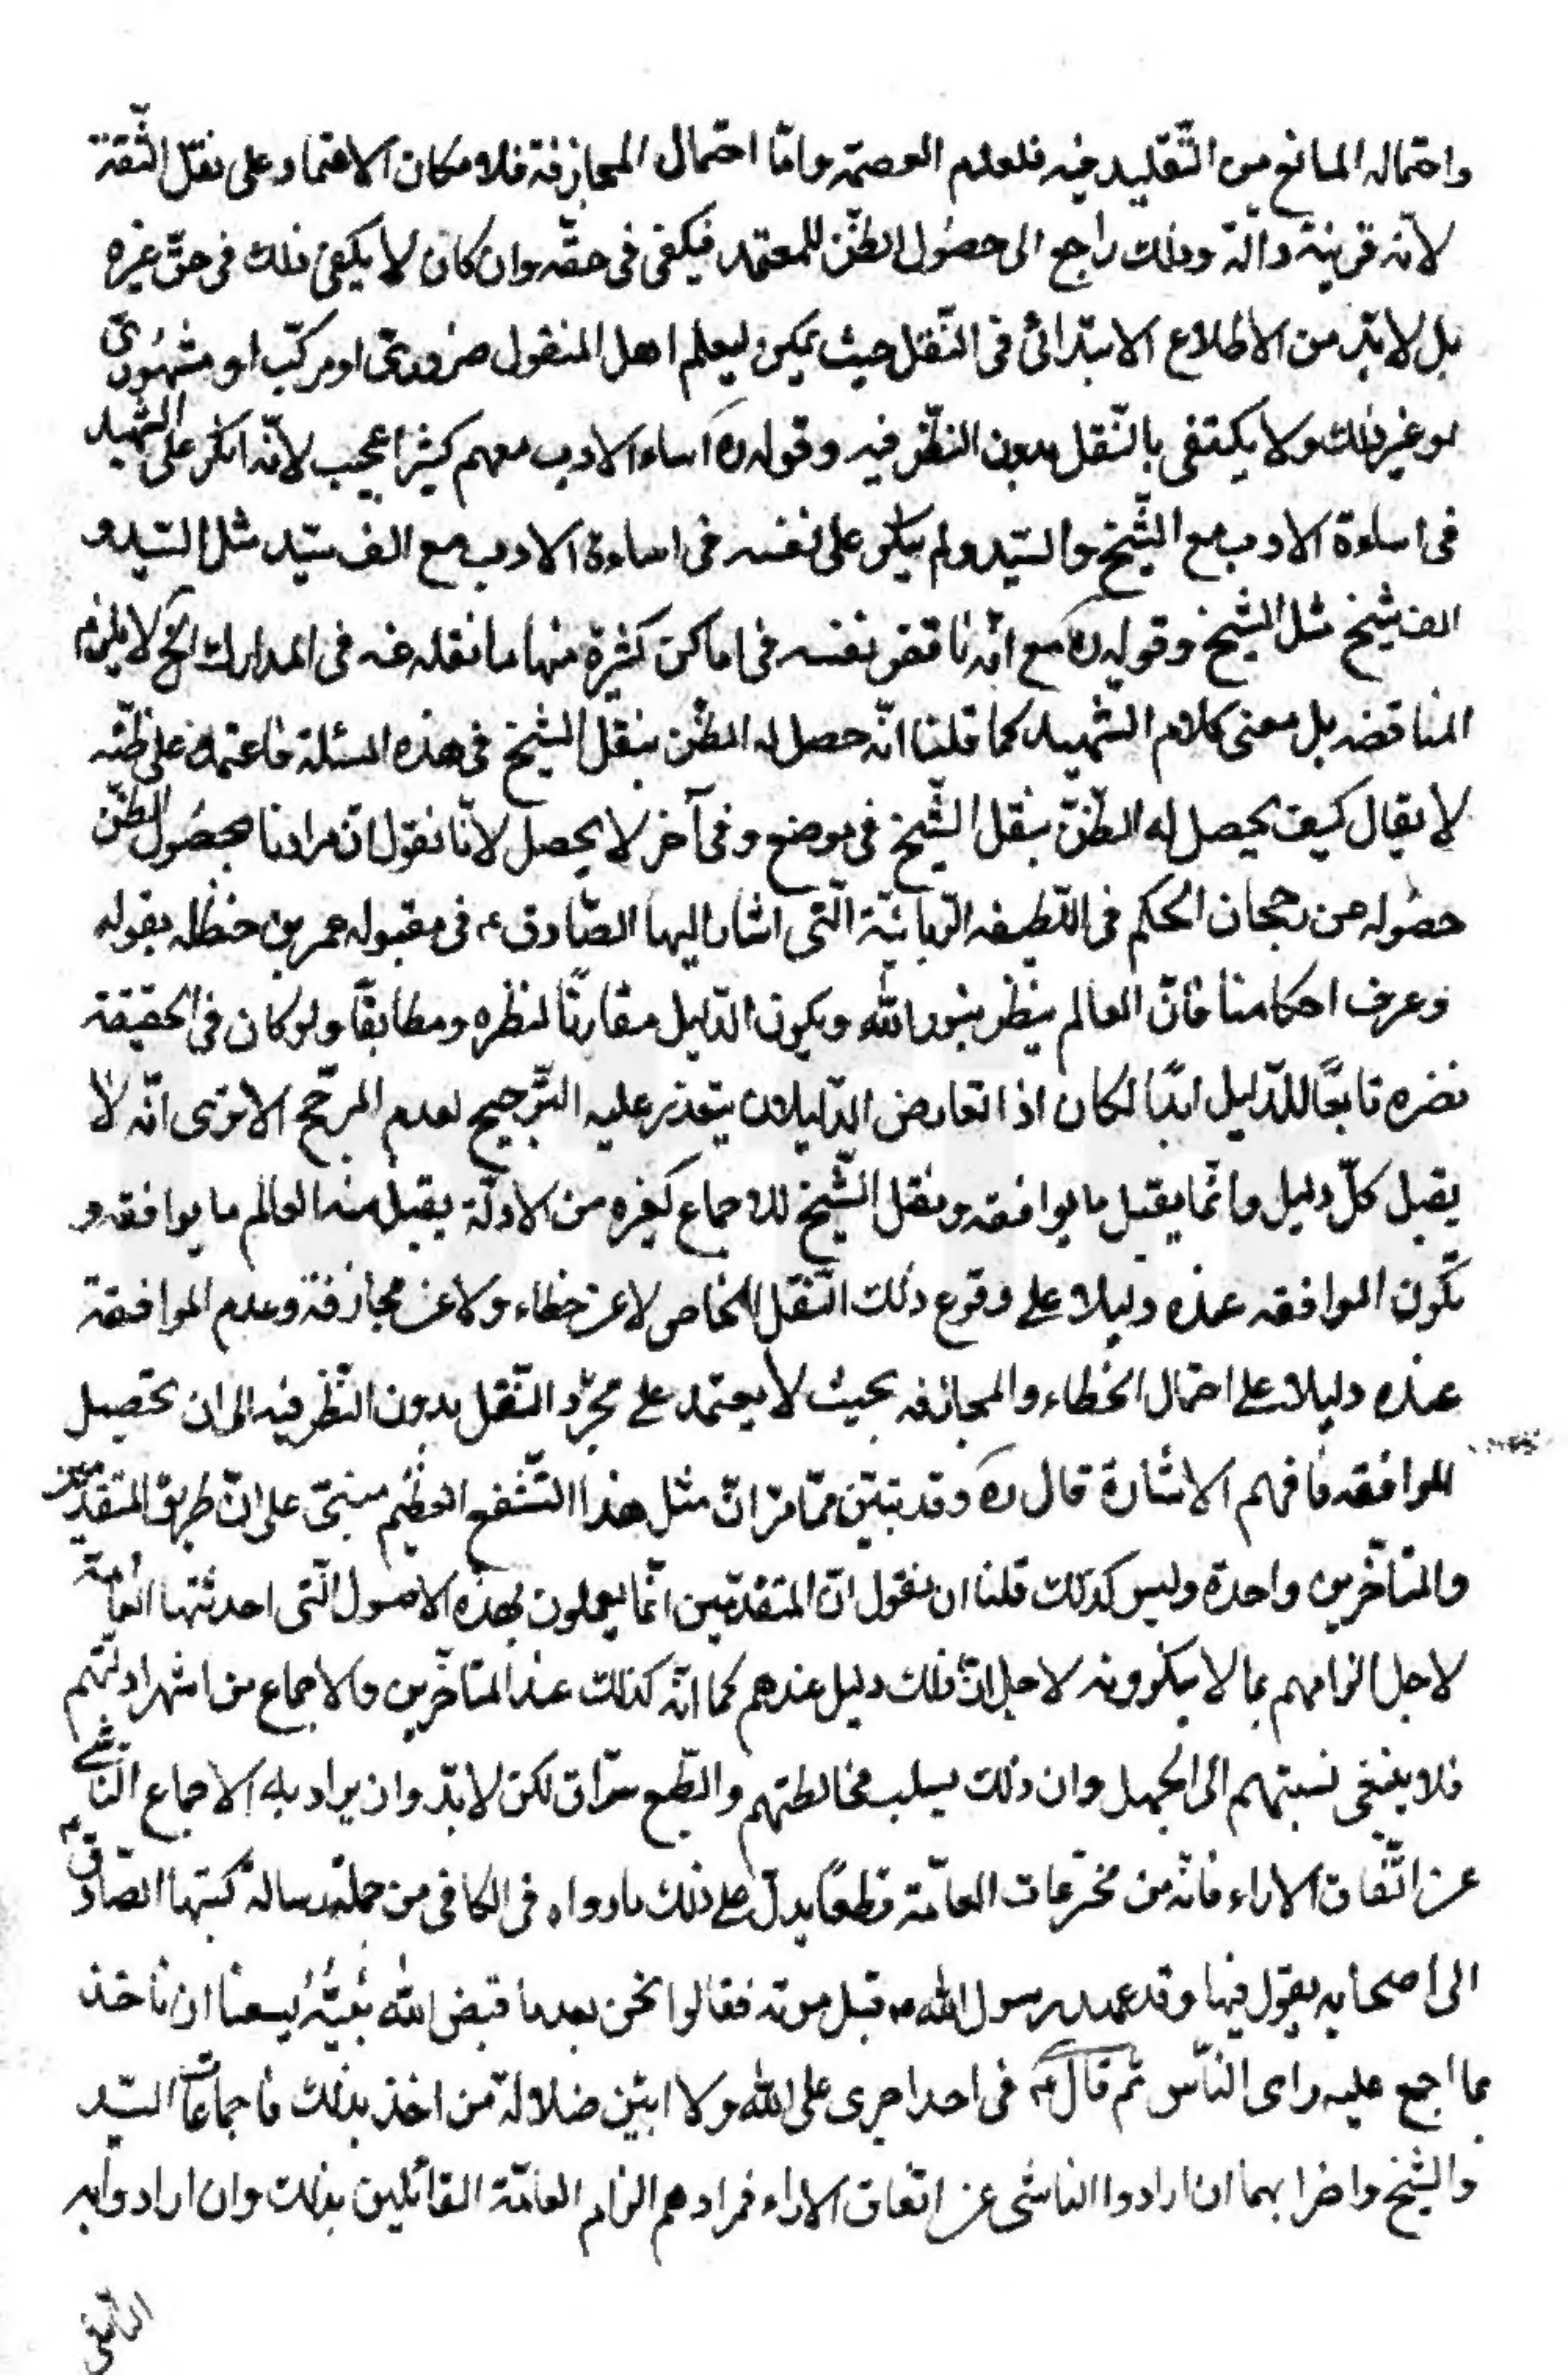 واحتماله المانع من التّقليد فيه فلعدم العصمة وامّا احتمال المجازفة فلامكان الاعتماد على نقل الثّقة
لانّه قرينة دالّة وذلك راجع الى حصُول الظّن للمعتمد فيكفى فى حقّه وان كان لا يكفى ذلك فى حقّ غيره
بل لا بدّ من الاطلاع الابتدائى فى النّقل حيث يمكن ليعلم اهل المنقول ضرورىّ او مركّب او مشهُورىّ
او غير ذلك ولا يكتفى بالنّقل بدون النظّر فيه وقوله ره اساء الادب معهم كثيرا عجيب لانّه انكر على الشّهيد
فى اساءة الادب مع الشّيخ والسّيد ولم ينكر على نفسه فى اساءة الادب مع الف سيّد مثل السّيد و
الف شيخ مثل الشّيخ وقوله ره مع انّه ناقض نفسه فى اماكن كثيرة منها ما نقله عنه فى المدارك الخ لا يلزم
المناقضه بل معنى كلام الشّهيد كما قلنا انّه حصل له الظّن بنقل الشّيخ فى هذه المسئلة فاعتمد على ظنّه
لا يقال كيف يحصل له الظّنّ بنقل الشّيخ فى موضع وفى آخر لا يحصل لانّا نقول انّ مرادنا بحصُول الظّن
حصُوله من رجحان الحكم فى اللّطيفه الرّبانيّة الّتى اشار اليها الصّادق ع فى مقبوله عمر بن حنظله بقوله
وعرف احكامنا فانّ العالم ينظر بنور الله ويكون الدّليل مقارنًا لنظره ومطابقًا ولو كان فى الحقيقة
نضره تابعًا للدّليل ابدًا لكان اذا تعارض الدّليلان يتعذر عليه التّرجيح لعدم المرجّح الا ترى انّه لا
يقبل كلّ دليل وانّما يقبل ما يوافقه ونقل الشّيخ للاجماع كغيره من الادلّة يقبل منه العالم ما يوافقه و
تكون الموافقه عنده دليلا على وقوع ذلك النّقل الخاص لا عن خطاء ولا عن مجازفة وعدم الموافقة
عنده دليلا على احتمال الخطاء والمجازفه بحيث لا يعتمد على مجرّد النّقل بدون النّظر فيه الى ان تحصيل
الموافقه فافهم الاشارة قال ره وقد تبيّن ممّا مرّ انّ مثل هذا التّشنيع العظيم مبنىّ على انّ طريق المتقدّمين
والمتأخّرين واحدة وليس كذلك قلنا ان نقول انّ المتقدّمين انّما يعملون بهذه الاصول الّتى احدثتها العامّة
لاجل الزامهم بما لا ينكرونه لا لاجل انّ ذلك دليل عندهم كما انّه كذلك عند المتاخّرين والاجماع من اشهر ادلّتهم
فلا ينبغى نسبتهم الى الجهل وان ذلك بسلب مخالطتهم والطّبع سرّاق لكن لا بدّ وان يراد به الاجماع النّاشى
عن اتّفاق الاراء فانّه من مخترعات العامّة قطعًا يدلّ على ذلك ما رواه فى الكافى من جملة رسالة كتبها الصّادق ع
الى اصحابه يقول فيها وقد عهد رسول الله ص قبل موته فقالوا نحن بعد ما قبض الله نبيّهُ يسعنا ان نأخذ
بما اجمع عليه راى النّاس ثم قال ع فى احد اجرى على الله ولا ابين ضلالة من اخذ بذلك فاجماعات السّيد
والشّيخ واضرابهما ان ارادوا الناشى عن اتفاق الاراء فمرادهم الزام العامّة القائلين بذلك وان ارادوا به